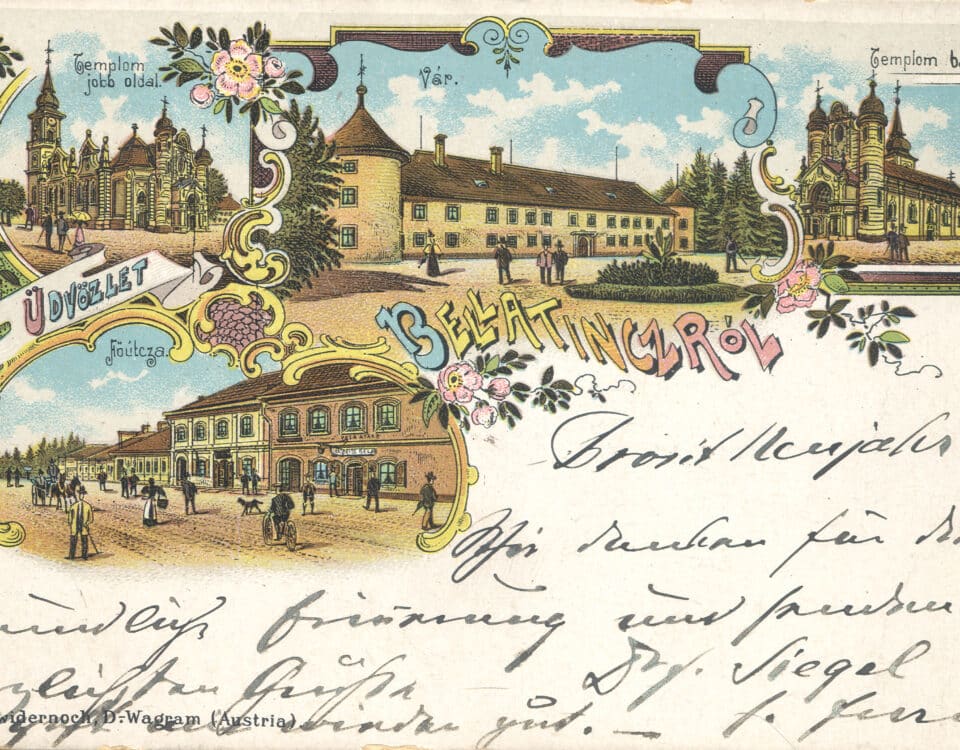 Templom
jobb oldal.
Vár.
Templom ba
ÜDVÖZLET
BELLATINCZRÓL
Főútcza.
Prosit Neujahr
Wir danken für de
undliche Erinnerung und senden
zlichsten Grüße — Dr. J. Siegel
widernoch, D.-Wagram (Austria).
wieder gut. —